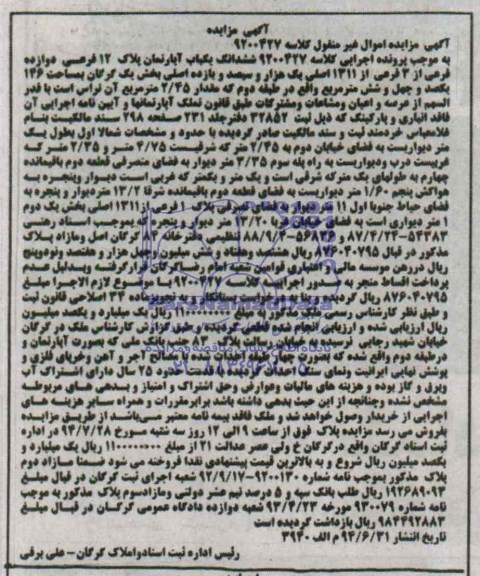 آگهی مزایده
آگهی مزایده اموال غیر منقول کلاسه ۹۲۰۰۴۲۷
به موجب پرونده اجرایی کلاسه ۹۲۰۰۴۲۷ ششدانگ یکباب آپارتمان پلاک ۱۲ فرعی دوازده
فرعی از ۳ فرعی از ۱۳۱۱ اصلی یک هزار و سیصد و یازده اصلی بخش یک گرگان بمساحت ۱۴۶
یکصد و چهل و شش مترمربع واقع در طبقه دوم که مقدار ۲/۴۵ مترمربع آن تراس است با قدر
السهم از عرصه و اعیان ومشاعات ومشترکات طبق قانون تملک آپارتمانها و آیین نامه اجرایی آن
فاقد انباری و پارکینگ که ذیل ثبت ۳۲۸۵۲ دفترجلد ۲۳۱ صفحه ۲۹۸ سند مالکیت بنام
غلامعباس خردمند ثبت و سند مالکیت صادر گردیده با حدود و مشخصات شمالا اول بطول یک
متر دیواریست به فضای خیابان دوم به ۲/۴۵ متر که شرقیست ۴/۷۵ متر و ۲/۳۵ متر که
غربیست درب ودیواریست به راه پله سوم ۳/۳۵ متر دیوار به فضای متصرفی قطعه دوم باقیمانده
چهارم به طولهای یک مترکه شرقی است و یک متر و یکمتر که غربی است دیوار وپنجره به
هواکش پنجم ۱/۶۰ متر دیواریست به فضای قطعه دوم باقیمانده شرقا ۱۳/۲ متردیوار و پنجره به
فضای حیاط جنوبا اول ۱۱ متر دیوار به فضای متصرفی پلاک ۱ فرعی از۱۳۱۱ اصلی بخش یک دوم
۱ متر دیواری است به فضای خیابان غربا ۱۳/۲۰ متر دیوار و پنجره که بموجب اسناد رهنی
۵۴۳۸۳-۸۷/۴/۲۴ و ۵۶۸۳۶-۸۸/۹/۴ تنظیمی دفترخانه گرگان اصل ومازاد پلاک
مذکور در قبال ۸۷۶۰۴۰۷۹۵ ریال هشتصد وهفتاد و شش میلیون وچهل هزار و هفتصد ونودوپنج
ریال دررهن موسسه مالی و اعتباری قوامین شعبه امام رضا گرگان قرارگرفته وبدلیل عدم
پرداخت اقساط منجر به صدور اجرایی کلاسه ۹۲۰۰۴۲۷ با موضوع لازم الاجرا مبلغ
۸۷۶۰۴۰۷۹۵ ریال گردیده و بنا به درخواست بستانکار و به تجویز ماده ۳۴ اصلاحی قانون ثبت
و طبق نظر کارشناس رسمی ملک مذکور به مبلغ ۱۱۰۰۰۰۰۰۰۰ ریال یک میلیارد و یکصد میلیون
ریال ارزیابی شده و ارزیابی انجام شده قطعی گردیده و طبق گزارش کارشناس ملک در گرگان
خیابان شهید رجایی نرسیده به خیابان پلاک ۸۳ جنب بانک ملی که بصورت آپارتمان و
درطبقه دوم واقع شده که بصورت چهار طبقه احداث شده با مصالح آجر و آهن وخرپای فلزی و
پوشش نهایی ایرانیت ونمای سنگ احداث گردیده باقدمت حدود ۲۵ سال دارای اشتراک آب
وبرق و گاز بوده و هزینه های مالیات وعوارض وحق اشتراک و امتیاز و بدهی های مربوطه
مشخص نشده وچنانچه از این حیث بدهی داشته باشد برابرمقررات و همراه سایر هزینه های
اجرایی از خریدار وصول خواهد شد و ملک فاقد بیمه نامه معتبر می‌باشد از طریق مزایده
بفروش می رسد مزایده پلاک فوق از ساعت ۹ الی ۱۲ روز سه شنبه مورخ ۹۴/۷/۲۸ در اداره
ثبت اسناد گرگان واقع درگرگان خ ولی عصر عدالت ۲۱ از مبلغ ۱۱۰۰۰۰۰۰۰۰ ریال یک میلیارد و
یکصد میلیون ریال شروع و به بالاترین قیمت پیشنهادی نقدا فروخته می شود ضمنا مازاد دوم
پلاک مذکور بموجب نامه شماره ۹۲۰۰۱۳۰-۹۲/۹/۱۷ شعبه اجرای ثبت گرگان در قبال مبلغ
۱۹۲۶۸۹۰۹۳ ریال طلب بانک سپه و ۵ درصد نیم عشر دولتی ومازادسوم پلاک مذکور به موجب
نامه شماره ۹۳۰۰۷۹ مورخه ۹۳/۴/۲۳ شعبه دوازده دادگاه عمومی گرگان در قبال مبلغ
۹۸۴۴۹۲۸۸۳ ریال بازداشت گردیده است
تاریخ انتشار ۹۴/۶/۳۱ م الف ۳۹۴۰
رئیس اداره ثبت اسنادواملاک گرگان – علی برقی